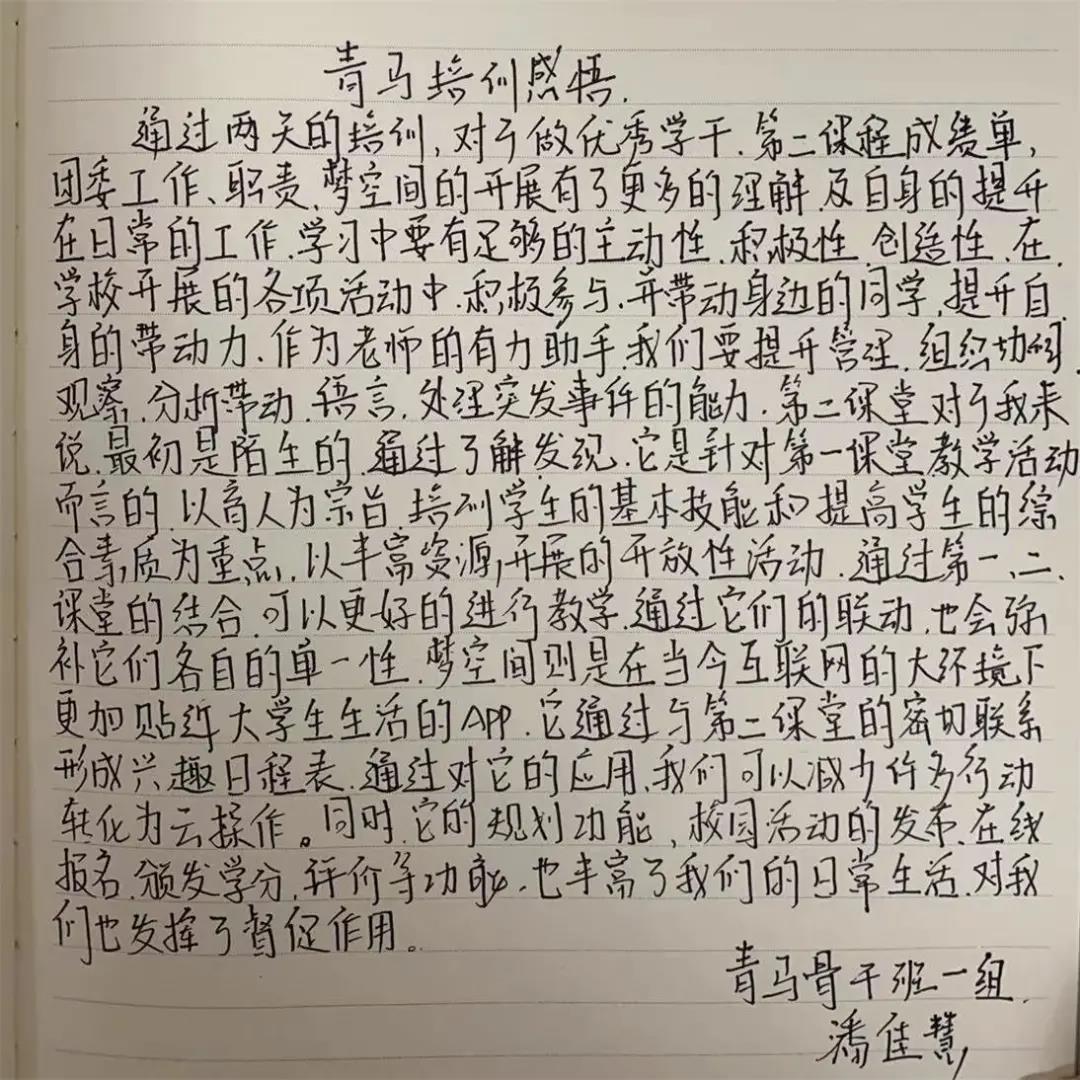 青马培训感悟.
通过两天的培训,对于做优秀学干.第二课程成绩单,
团委工作、职责.梦空间的开展有了更多的理解.及自身的提升
在日常的工作.学习中要有足够的主动性.积极性.创造性.在
学校开展的各项活动中.积极参与.并带动身边的同学,提升自
身的带动力.作为老师的有力助手.我们要提升管理.组织
观察.分析带动.语言.处理突发事件的能力.第二课堂对于我来
说.最初是陌生的.通过了解发现.它是针对第一课堂教学活动
而言的.以育人为宗旨.培训学生的基本技能和提高学生的综
合素质为重点.以丰富资源,开展的开放性活动.通过第一、二.
课堂的结合.可以更好的进行教学.通过它们的联动.也会弥
补它们各自的单一性.梦空间则是在当今互联网的大环境下
更加贴近大学生生活的APP.它通过与第二课堂的密切联系
形成兴趣日程表.通过对它的应用.我们可以减少许多行动
转化为云操作。同时.它的规划功能,校园活动的发布.在线
报名.颁发学分.评价等功能.也丰富了我们的日常生活.对我
们也发挥了督促作用。
青马骨干班一组.
潘佳慧